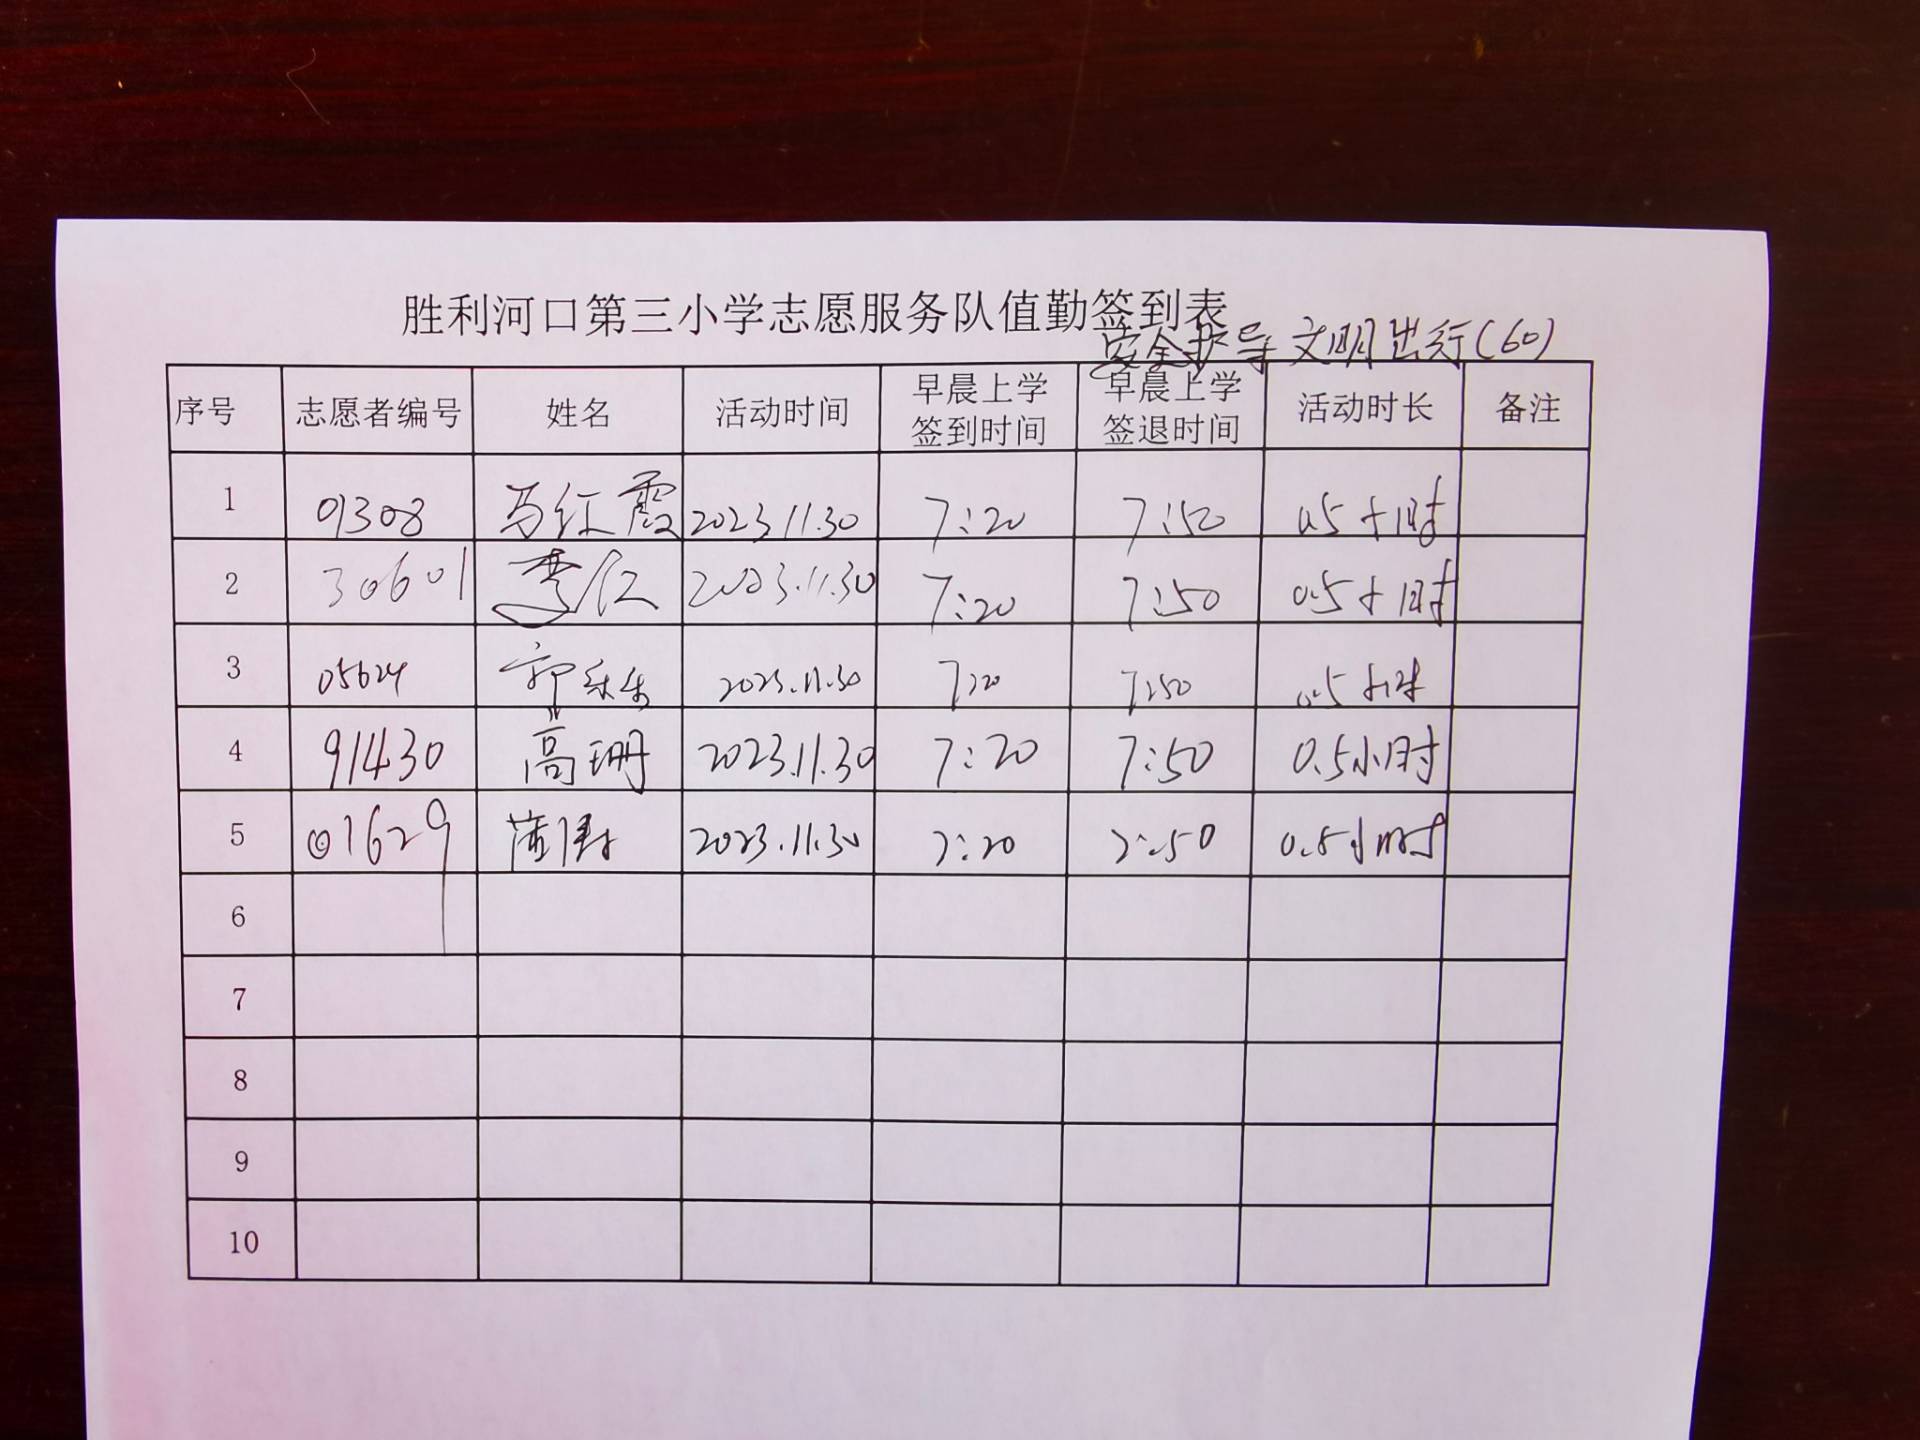 胜利河口第三小学志愿服务队值勤签到表
安全护导 文明出行(60)
序号 志愿者编号 姓名 活动时间 早晨上学签到时间 早晨上学签退时间 活动时长 备注
1 01308 马红霞 2023 11.30 7:20 7:50 0.5小时
2 30601 李仁 2023.11.30 7:20 7:50 0.5小时
3 05624 郭乐乐 2023.11.30 7:20 7:50 0.5小时
4 91430 高珊 2023.11.30 7:20 7:50 0.5小时
5 01629 2023.11.30 7:20 7:50 0.5小时
6
7
8
9
10